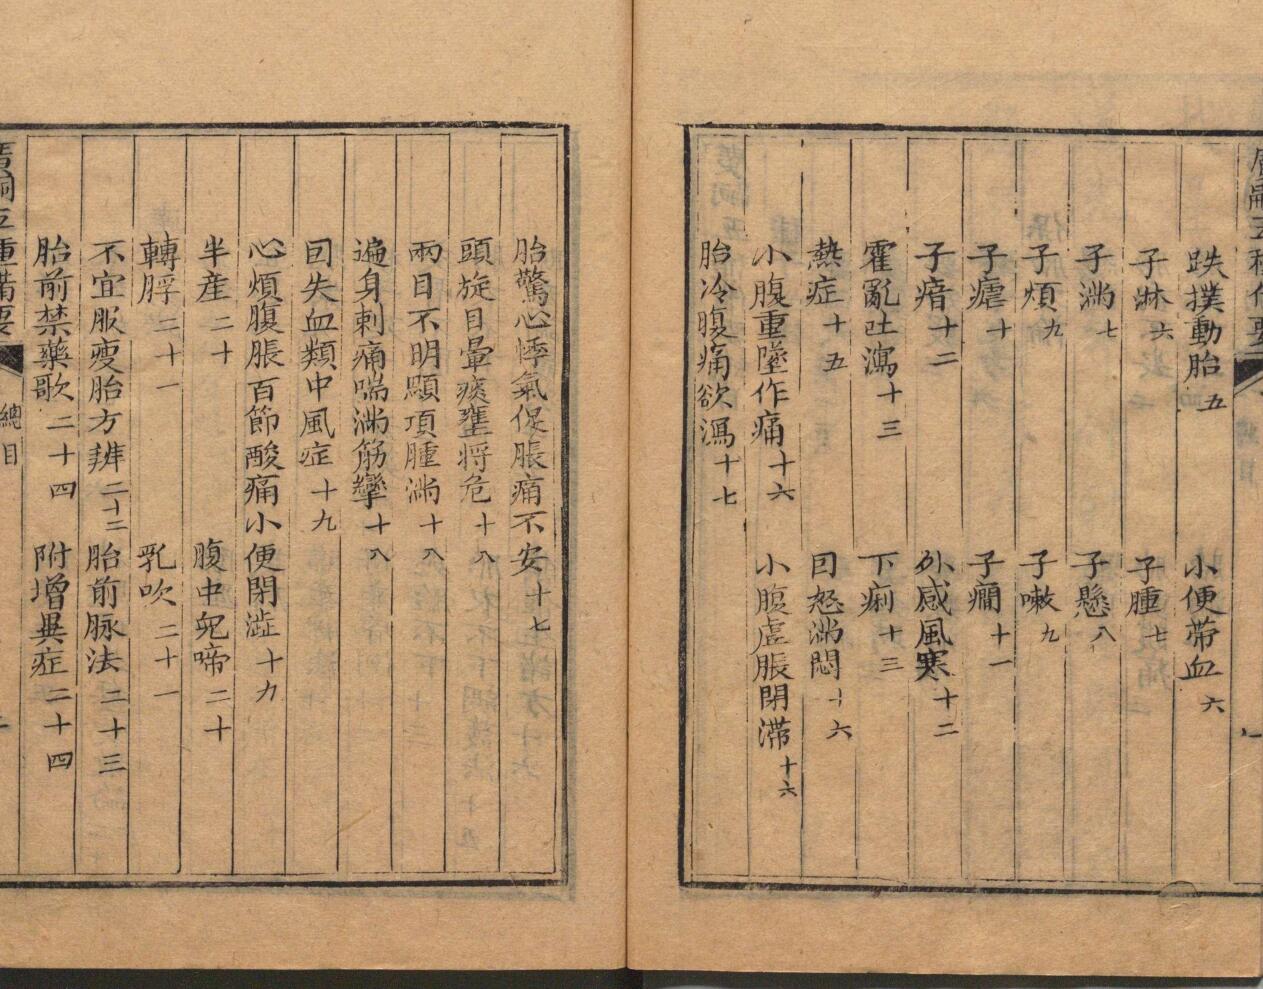 廣嗣五種備要
跌撲動胎五 小便帶血六
子淋六 子腫七
子滿七 子懸八
子煩九 子嗽九
子瘧十 子癇十一
子瘖十二 外感風寒十二
霍亂吐瀉十三 下痢十三
熱症十五 因怒滿悶十六
小腹重墜作痛十六 小腹虛脹閉滯十六
胎冷腹痛欲瀉十七
胎驚心悸氣促脹痛不安十七
頭旋目暈痰壅將危十八
兩目不明顋項腫滿十八
遍身刺痛喘滿筋攣十八
因失血類中風症十九
心煩腹脹百節酸痛小便閉澁十九
半産二十 腹中兒啼二十
轉脬二十一 乳吹二十一
不宜服瘦胎方辨二十二 胎前脈法二十三
胎前禁藥歌二十四 附增異症二十四
廣嗣五種備要 總目